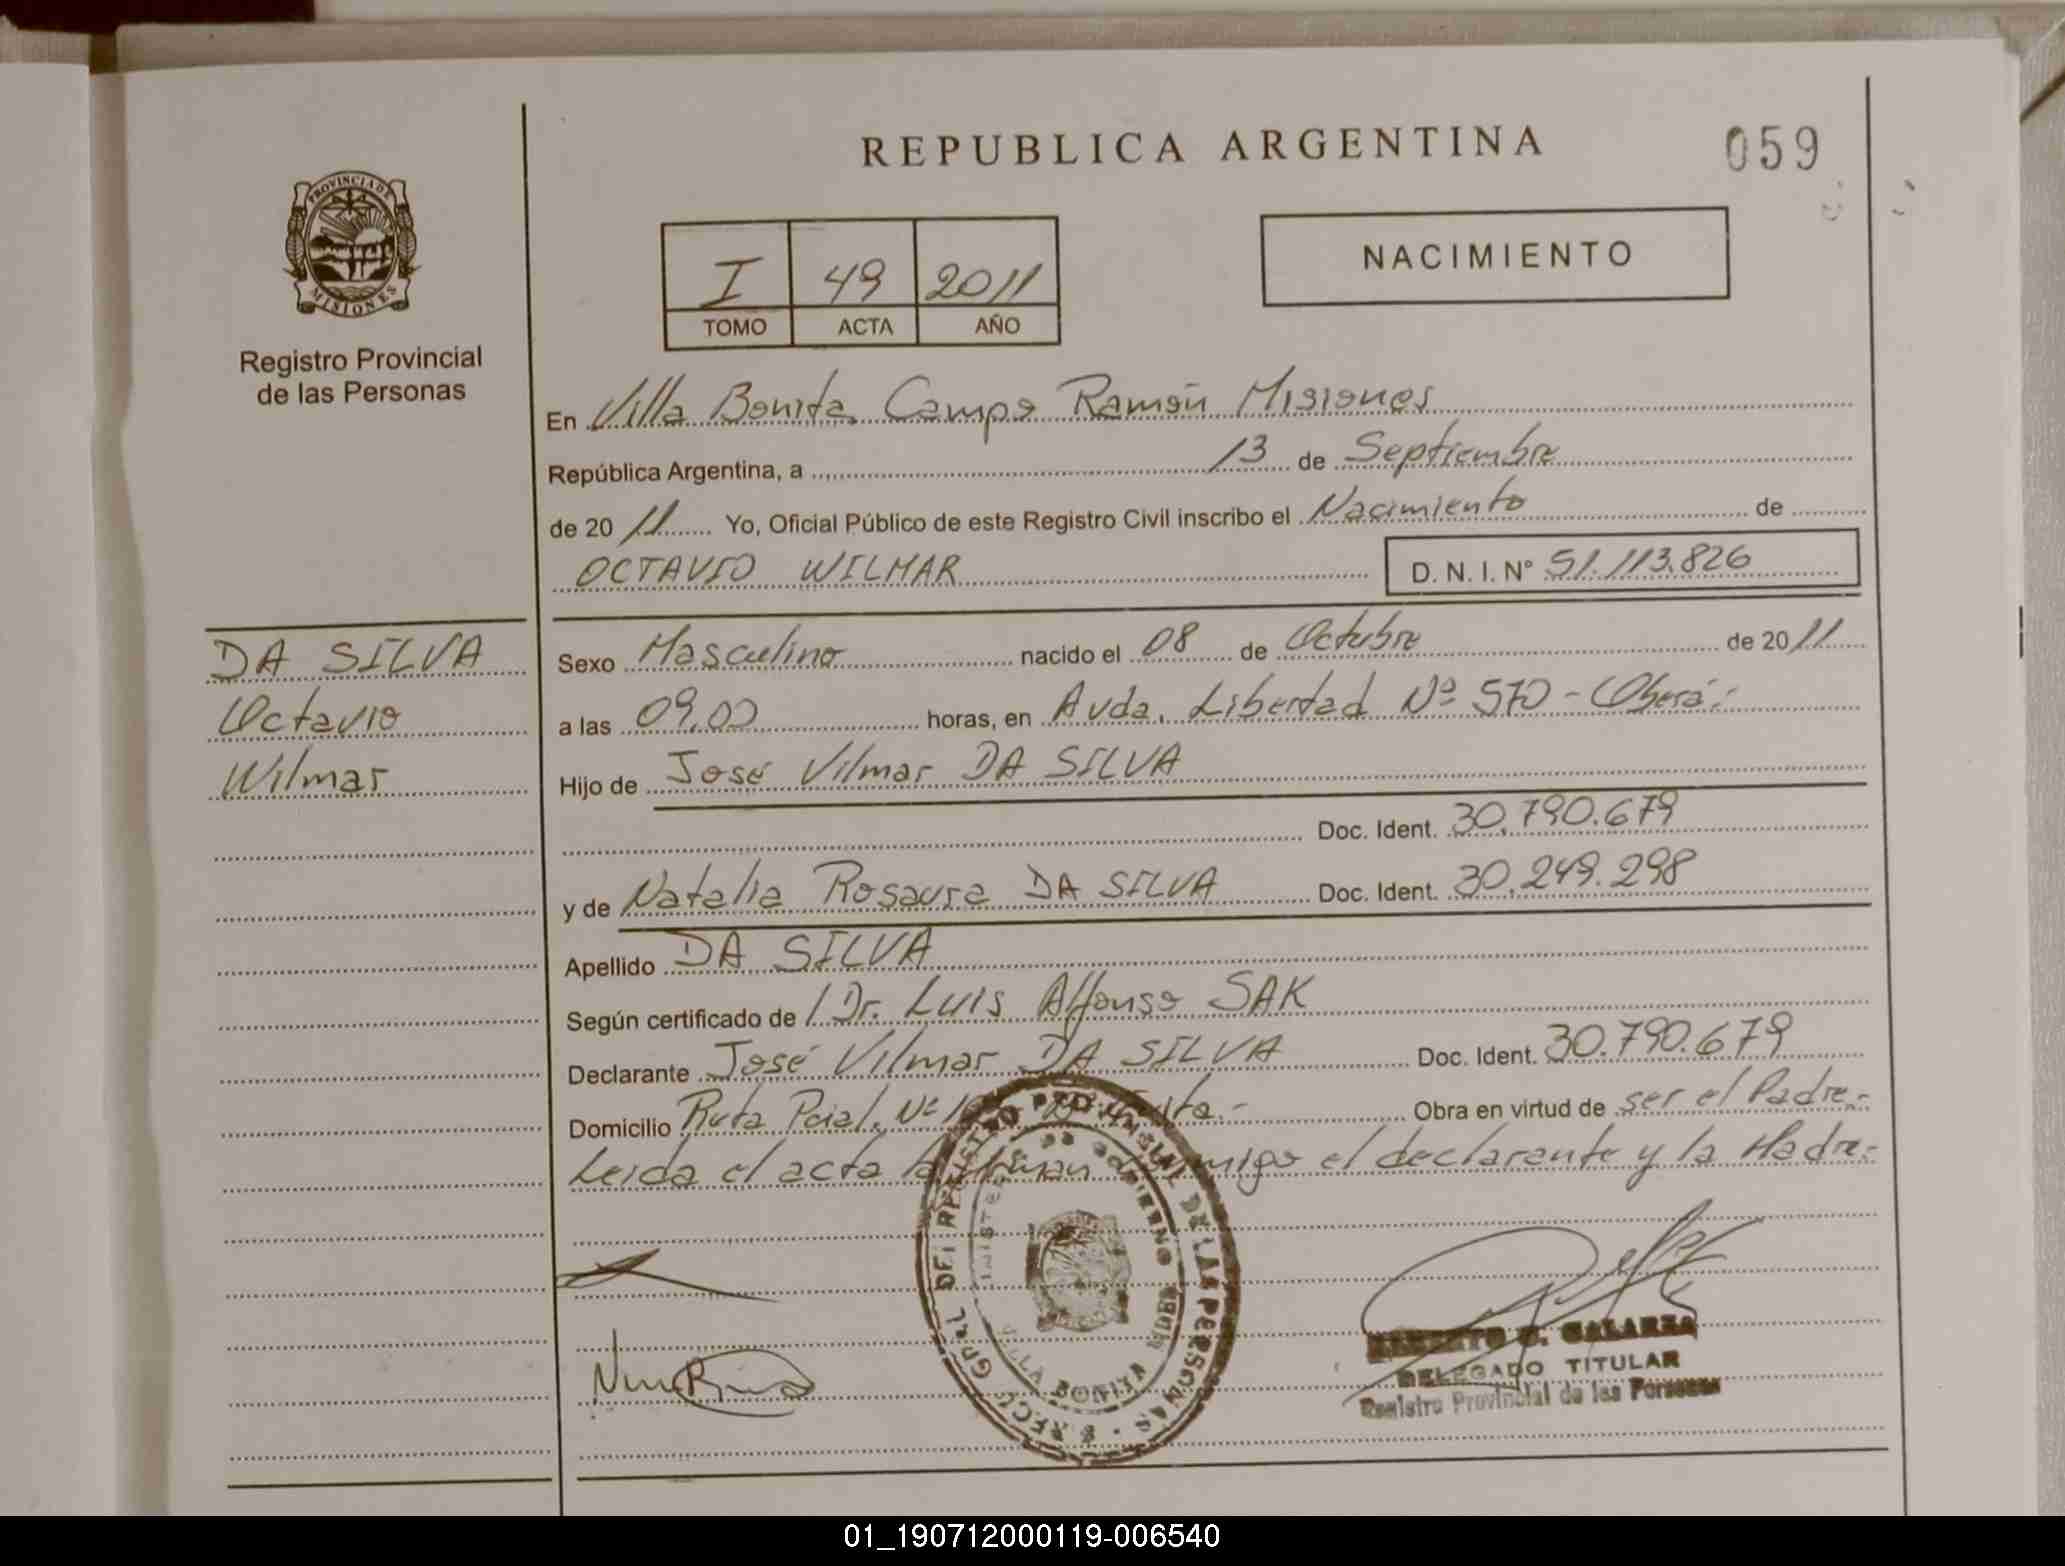 REPUBLICA ARGENTINA
059
PROVINCIA DE
MISIONES
Registro Provincial
de las Personas
I 49 2011
TOMO ACTA AÑO
NACIMIENTO
En Villa Bonita Campo Ramón Misiones
República Argentina, a 13 de Septiembre
de 20 11 Yo, Oficial Público de este Registro Civil inscribo el Nacimiento de
OCTAVIO WILMAR D. N. I. N° 51.113.826
DA SILVA
Octavio
Wilmar
Sexo Masculino nacido el 08 de Octubre de 20 11
a las 09,00 horas, en Avda. Libertad Nº 570 - Oberá.-
Hijo de José Vilmar DA SILVA
Doc. Ident. 30.790.679
y de Natalia Rosaura DA SILVA Doc. Ident. 30.249.298
Apellido DA SILVA
Según certificado de / Dr. Luis Alfonso SAK
Declarante José Vilmar DA SILVA Doc. Ident. 30.790.679
Domicilio Ruta Pcial. Nº Obra en virtud de ser el Padre.-
Leida el acta la firman conmigo el declarante y la Madre.-
GRAL. DEL REGISTRO PROVINCIAL DE LAS PERSONAS
MINISTERIO DE GOBIERNO
VILLA BONITA
GALARZA
DELEGADO TITULAR
Registro Provincial de las Personas
01_190712000119-006540